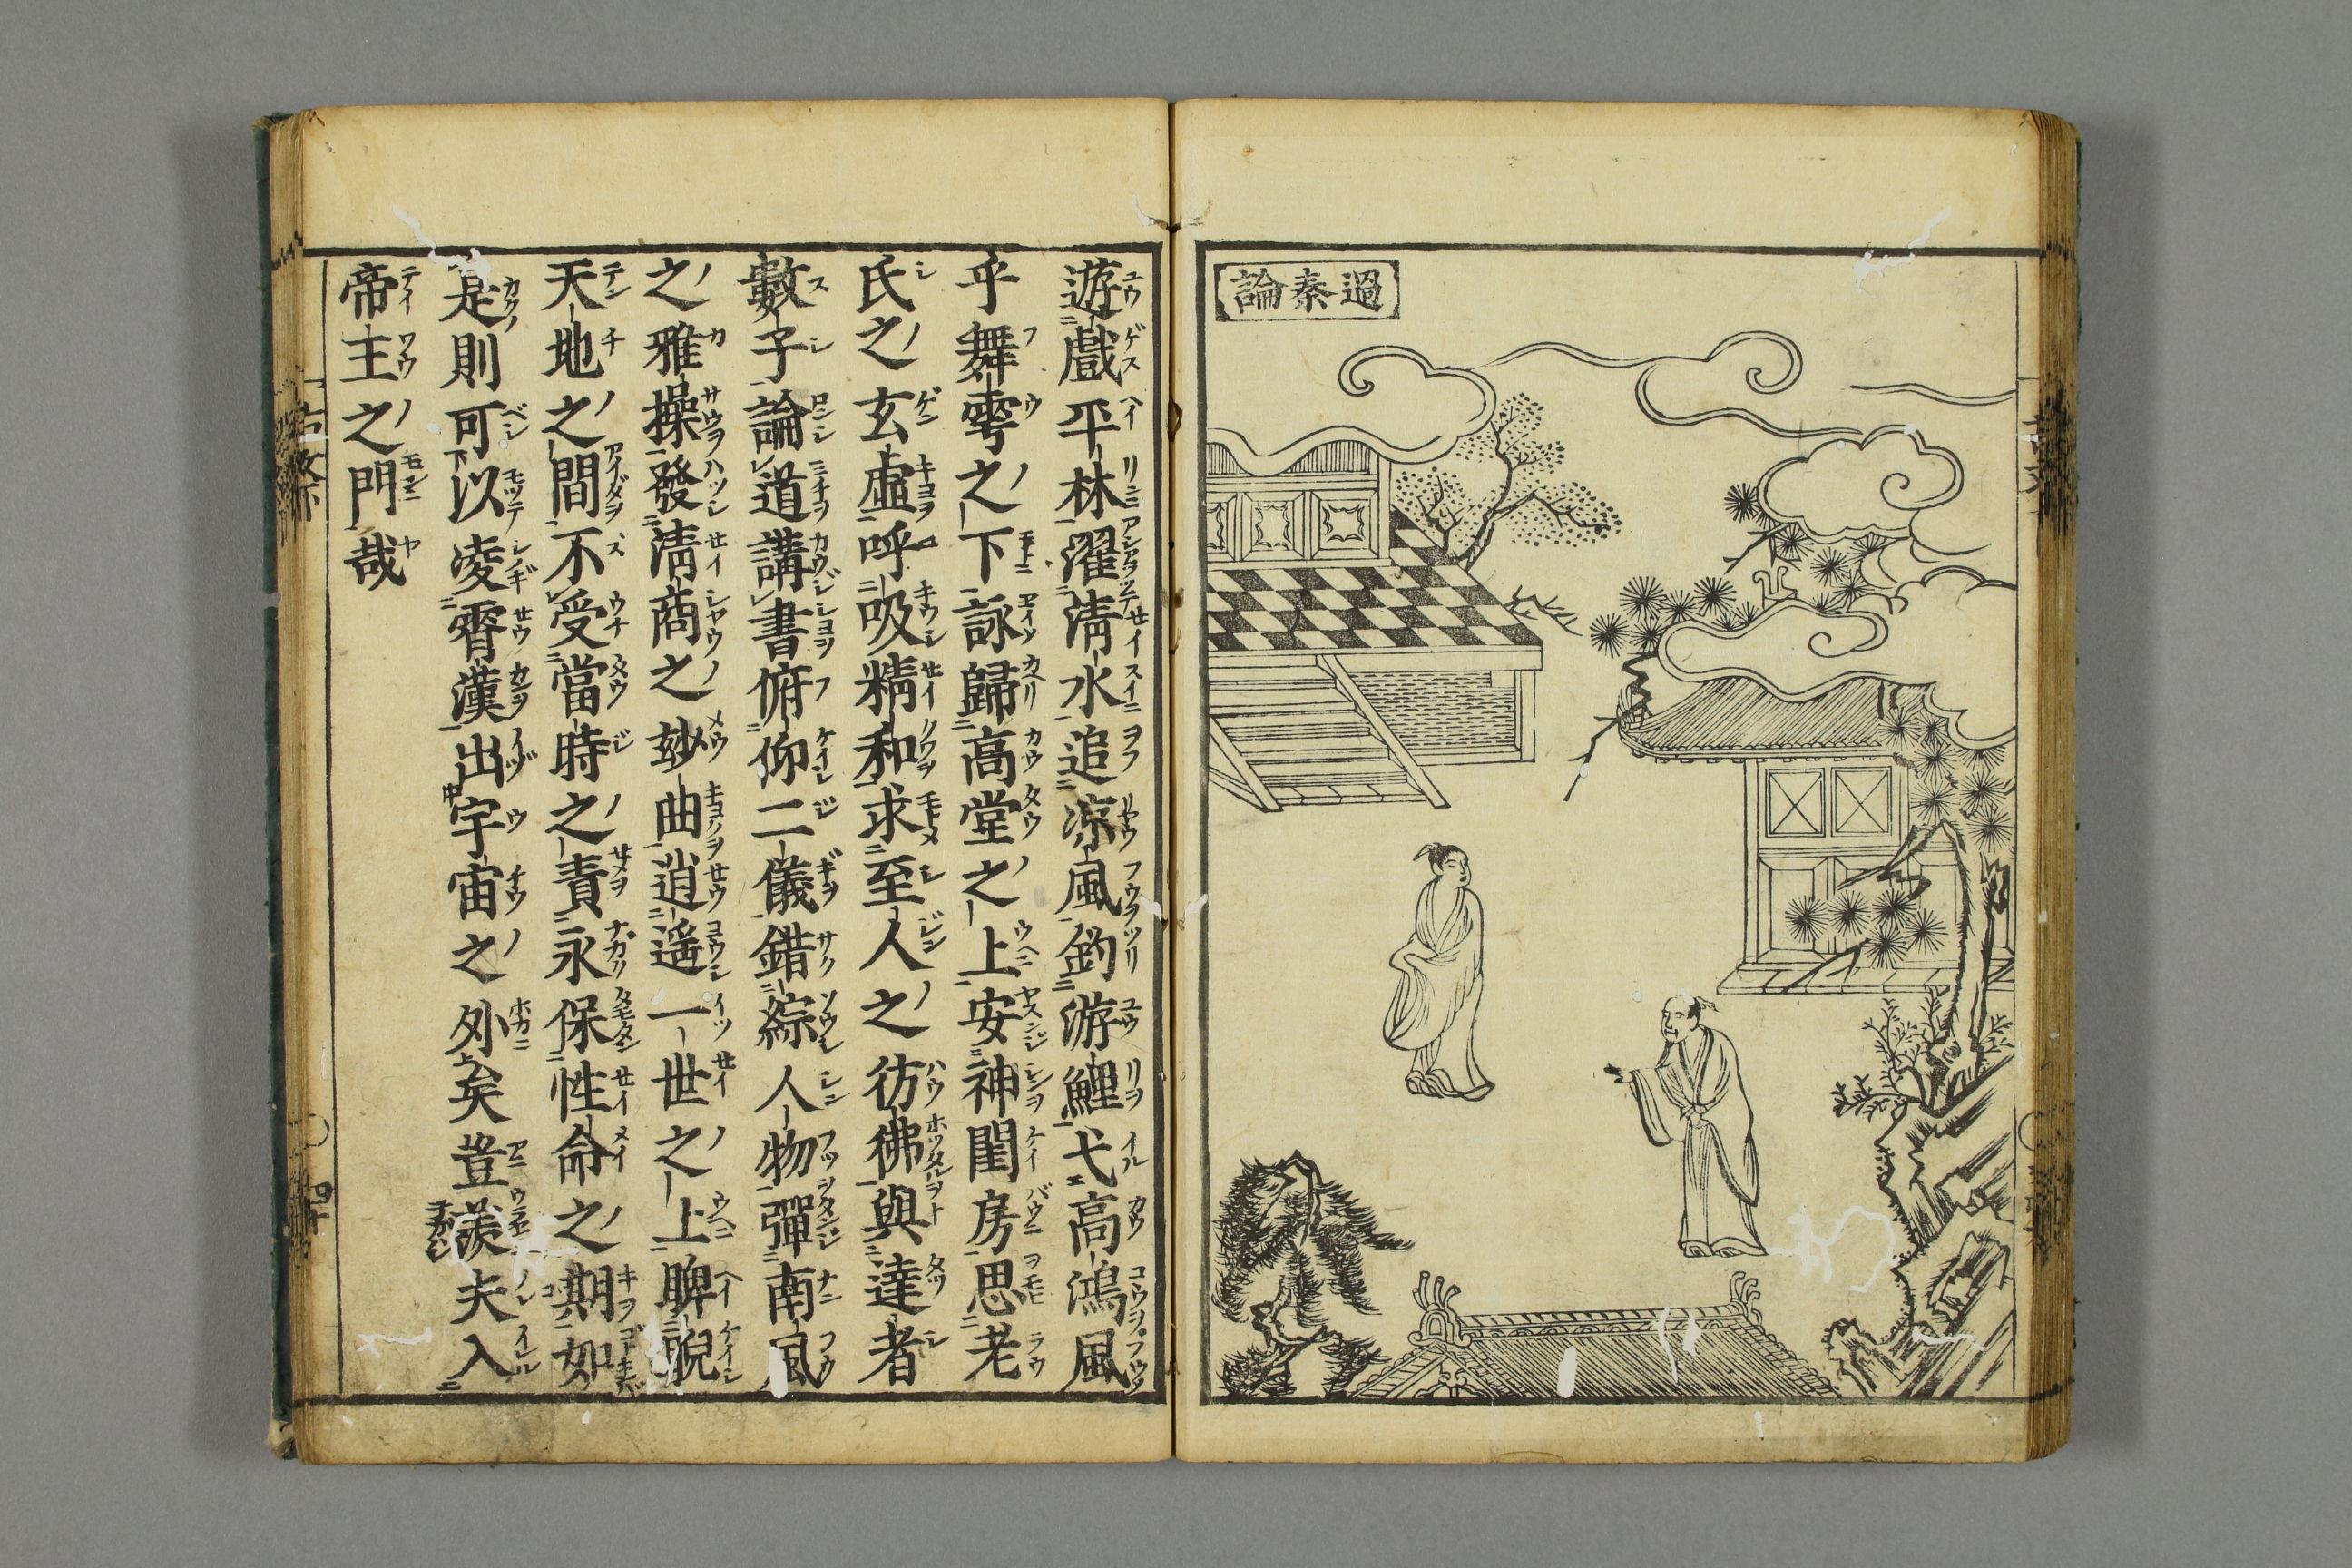 過秦論
遊戲平林濯淸水追凉風釣游鯉弋高鴻風
乎舞雩之下詠歸高堂之上安神閨房思老
氏之玄虛呼吸精和求至人之彷彿與達者
數子論道講書俯仰二儀錯綜人物彈南風
之雅操發淸商之妙曲逍遥一世之上睥睨
天地之間不受當時之責永保性命之期如
是則可以凌霄漢出宇宙之外矣豈羨夫入
帝王之門哉